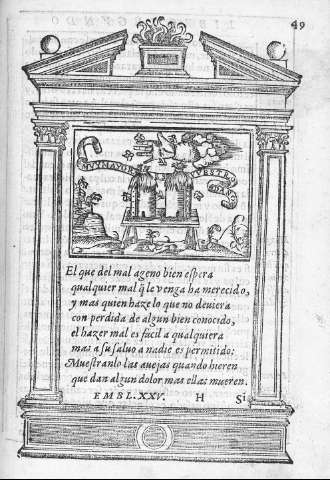 49
El que del mal ageno bien espera
qualquier mal q̃ le venga ha merecido,
y mas quien haze lo que no deuiera
con perdida de algun bien conocido,
el hazer mal es facil a qualquiera
mas a su saluo a nadie es permitido:
Muestranlo las auejas quando hieren
que dan algun dolor mas ellas mueren.
EMBL.XXV. H Si